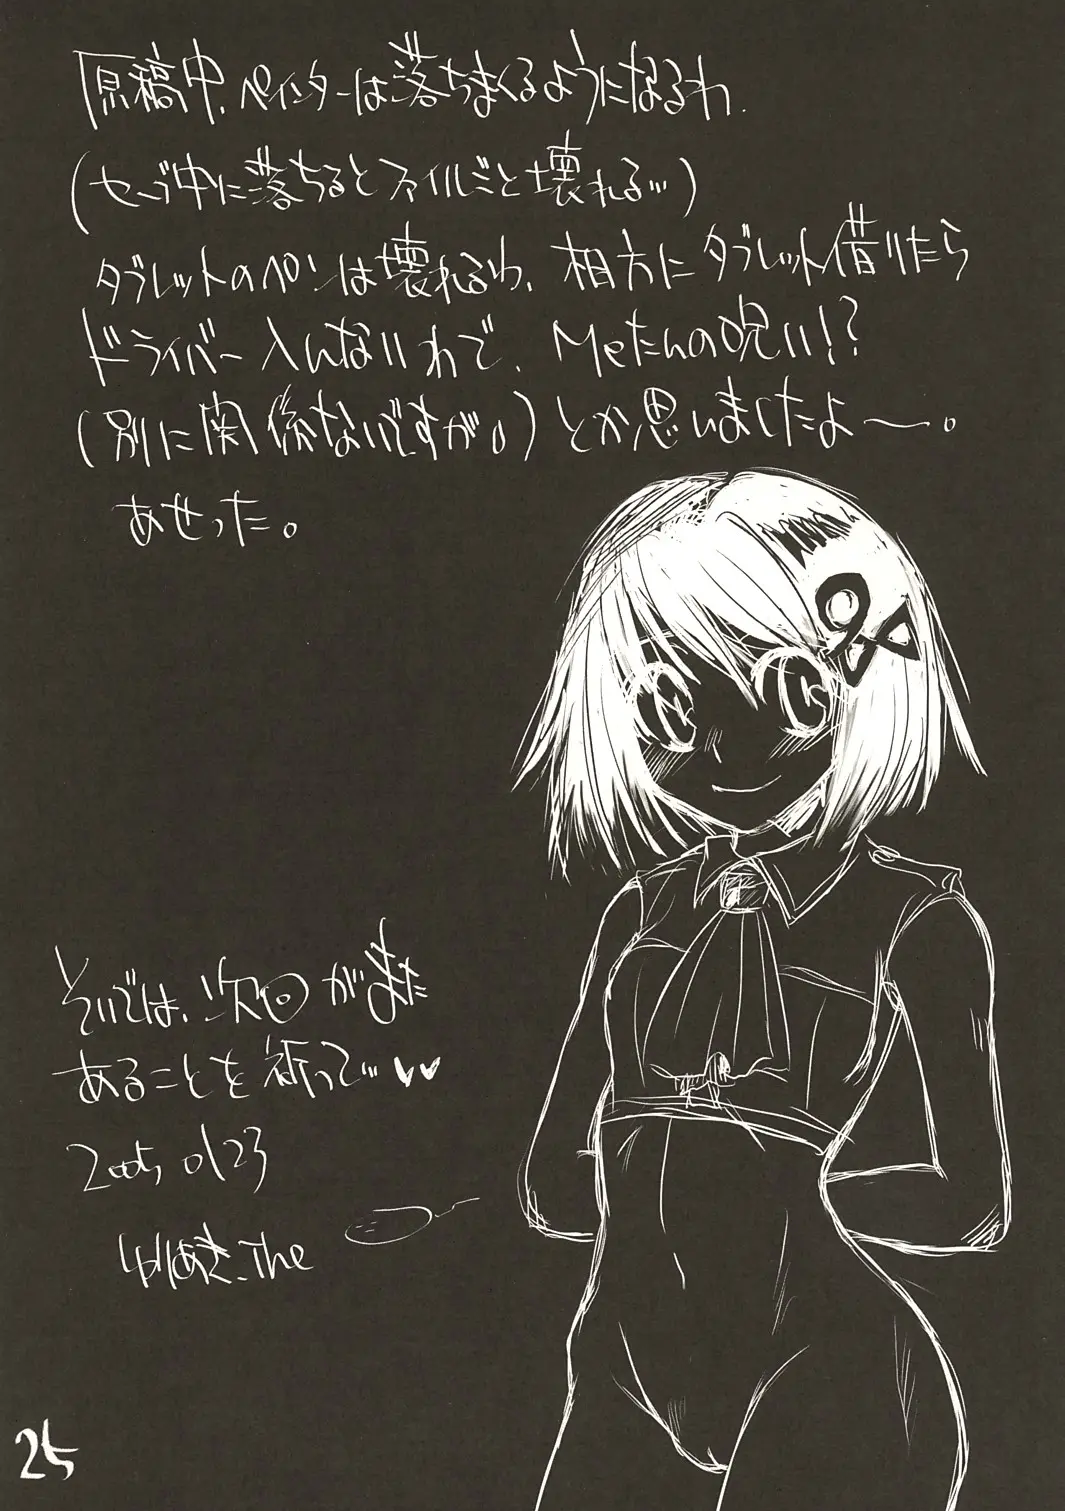 原稿中、ペインターは落ちまくるようになるわ、
(セーブ中に落ちるとファイルごと壊れる…)
タブレットのペンは壊れるわ、相方にタブレット借りたら
ドライバー入んないわで、Meたんの呪い!?
(別に関係ないですが。)とか思いましたよ〜。
あせった。
それでは、次回がまた
あることを祈って…♥♥
2005 0123
ゆりあき、The
25